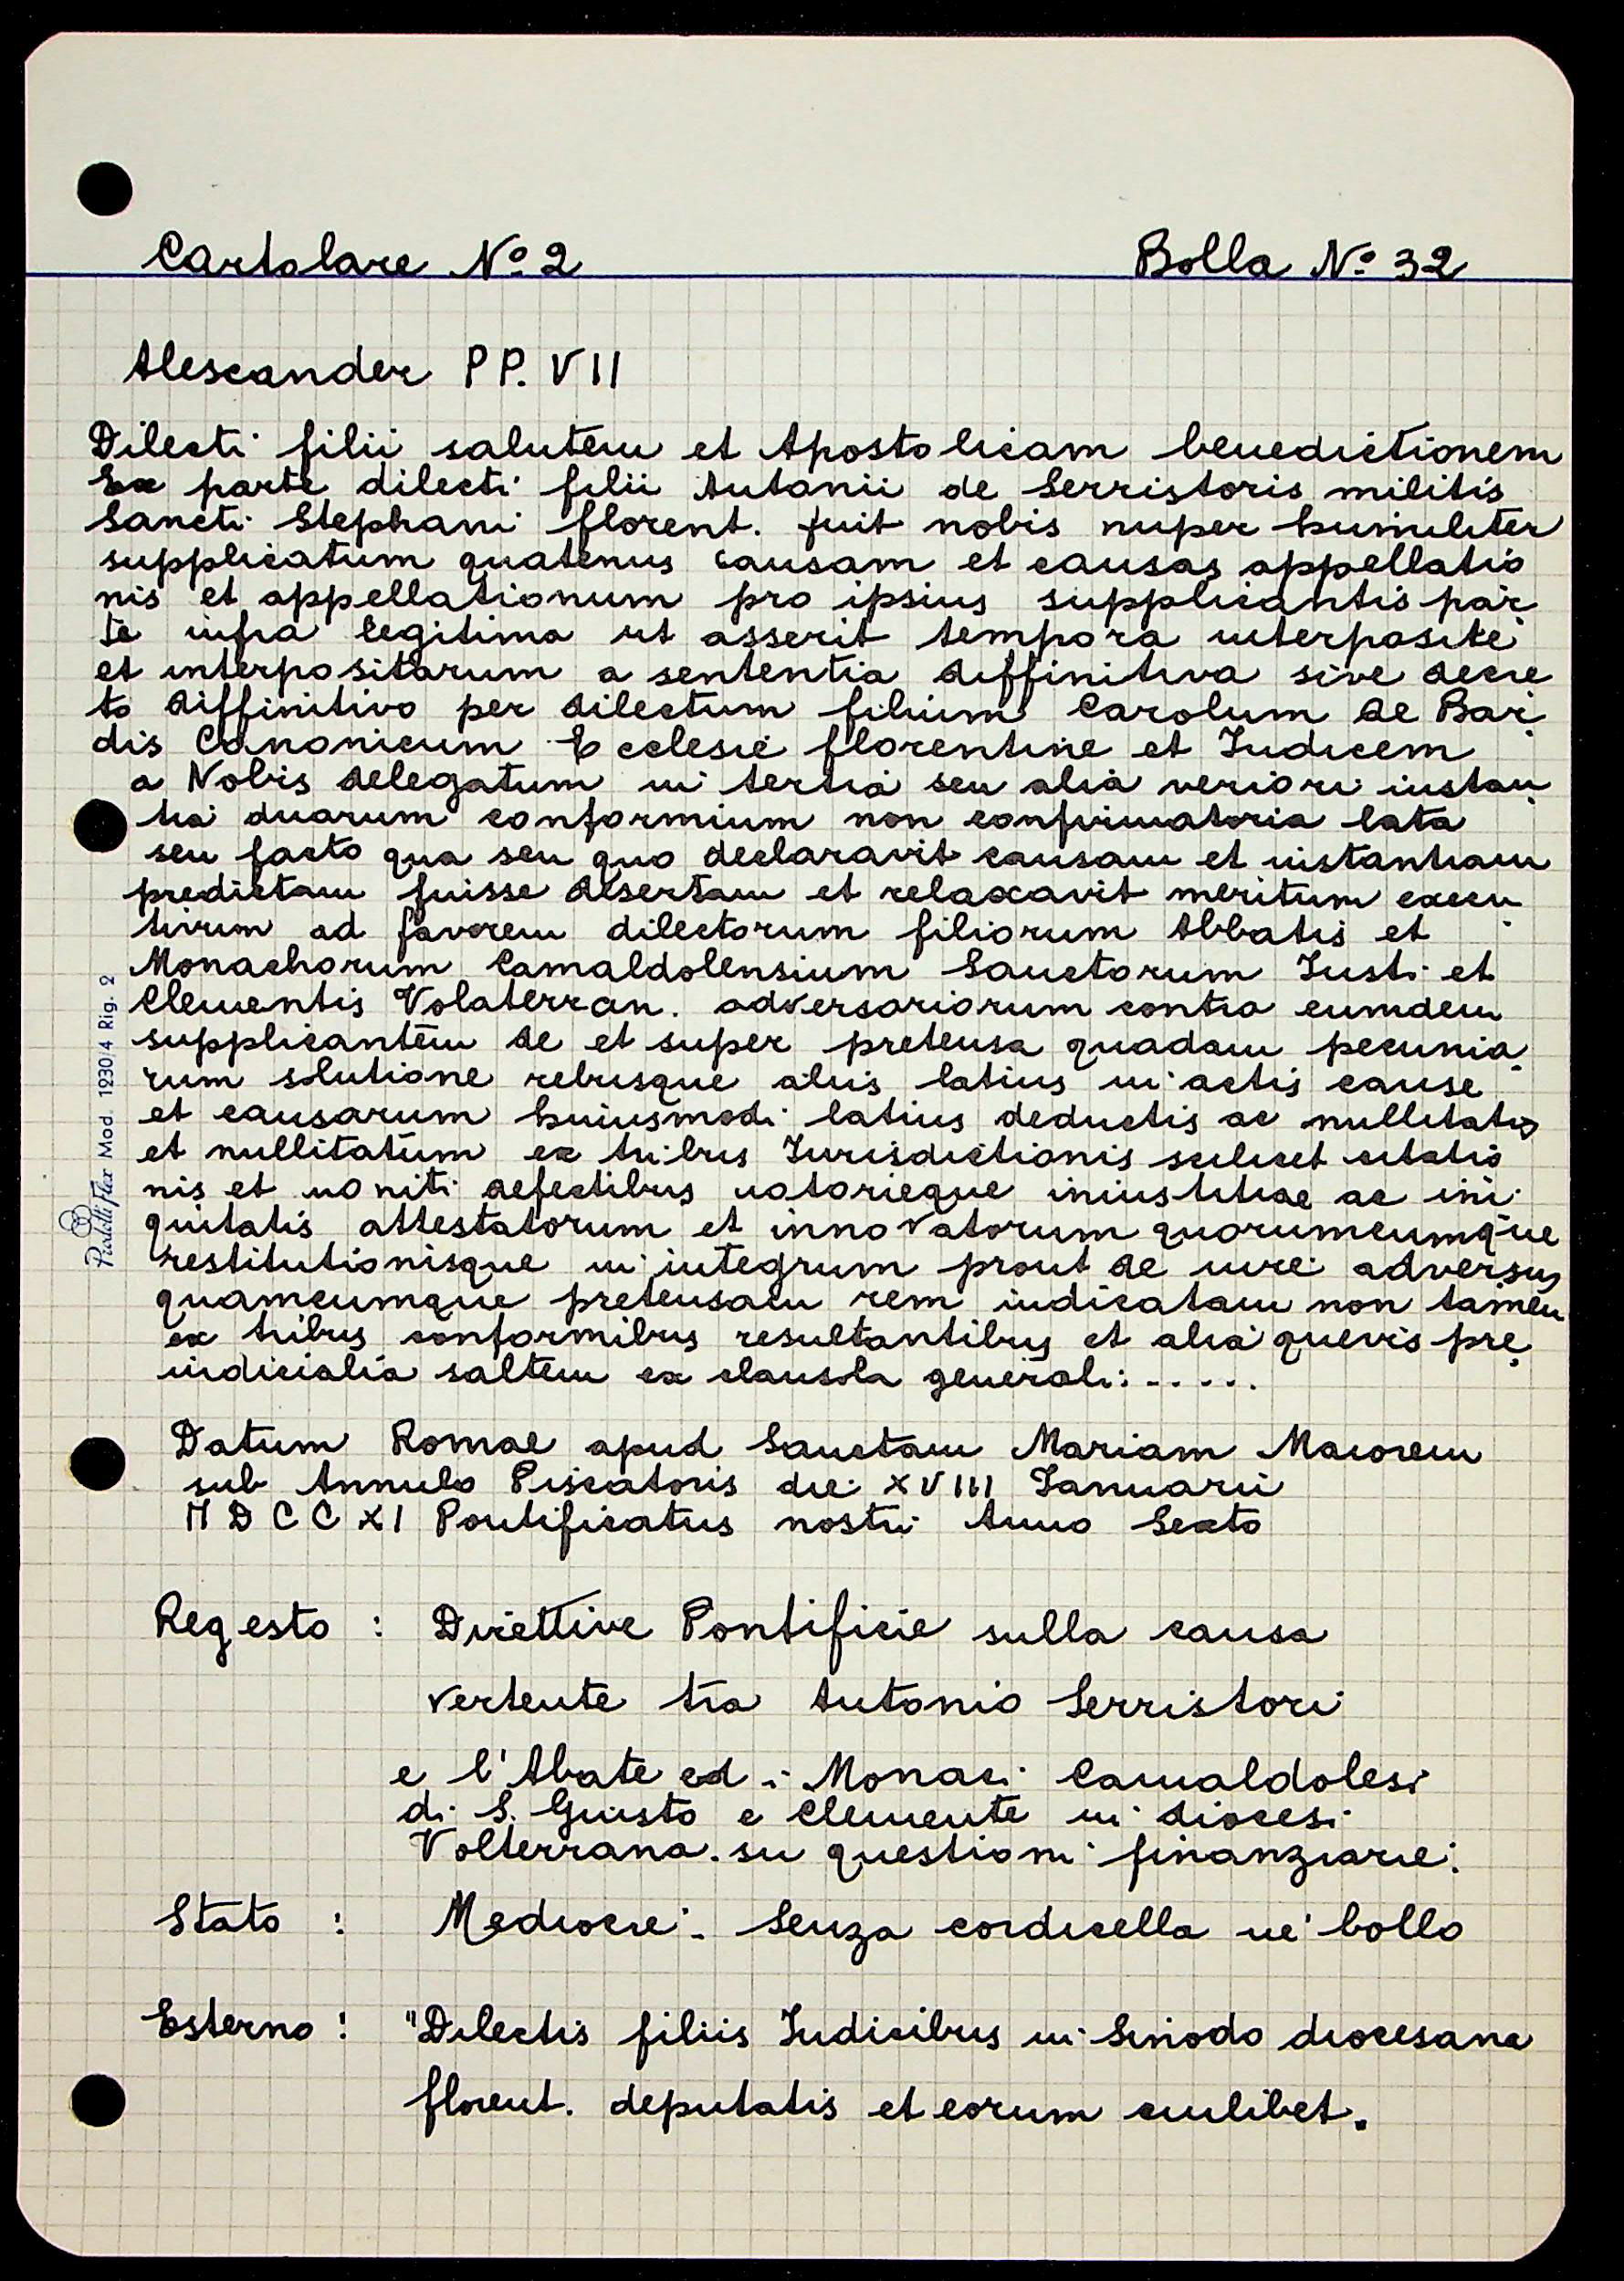 Cartolare No 2
Bolla No 32
Alexander PP. VII
Dilecti filii salutem et Apostolicam benedictionem
Ex parte dilecti filii Antonii de Serristoris militis
Sancti Stephani florent. fuit nobis nuper humiliter
supplicatum quatenus causam et causas appellatio
nis et appellationum pro ipsius supplicantis par
te infra legitima ut asserit tempora interposite
et interpositarum a sententia diffinitiva sive decre
to diffinitivo per dilectum filium Carolum de Bar
dis Canonicum Ecclesie florentine et Iudicem
a Nobis delegatum in tertia seu alia veriori instan
tia duarum conformium non confirmatoria lata
seu facto qua seu quo declaravit causam et instantiam
predictam fuisse desertam et relaxavit meritum execu
tivum ad favorem dilectorum filiorum Abbatis et
Monachorum Camaldolensium Sanctorum Iusti et
Clementis Volaterran. adversariorum contra eumdem
supplicantem de et super pretensa quadam pecunia
rum solutione rebusque aliis latius in actis cause
et causarum huiusmodi latius deductis ac nullitatis
et nullitatum ex tribus Iurisdictionis scilicet citatio
nis et moniti defectibus notorieque iniustitiae ac ini
quitatis attestatorum et innovatorum quorumcumque
restitutionisque in integrum prout de iure adversus
quamcumque pretensam rem iudicatam non tamen
ex tribus conformibus resultantibus et alia quevis pre
iudicialia saltem ex clausola generali: - . . . .
Datum Romae apud Sanctam Mariam Maiorem
sub Annulo Piscatoris die XVIII Ianuarii
MDCCXI Pontificatus nostri Anno Sexto
Regesto : Direttive Pontificie sulla causa
vertente tra Antonio Serristori
e l'Abate ed i Monaci Camaldolesi
di S. Giusto e Clemente in diocesi
Volterrana. su questioni finanziarie.
Stato : Mediocre. Senza cordicella né bollo
Esterno : "Dilectis filiis Iudicibus in Sinodo diocesana
florent. deputatis et eorum cuilibet.
Pardelli Flex Mod. 1230/4 Rig. 2